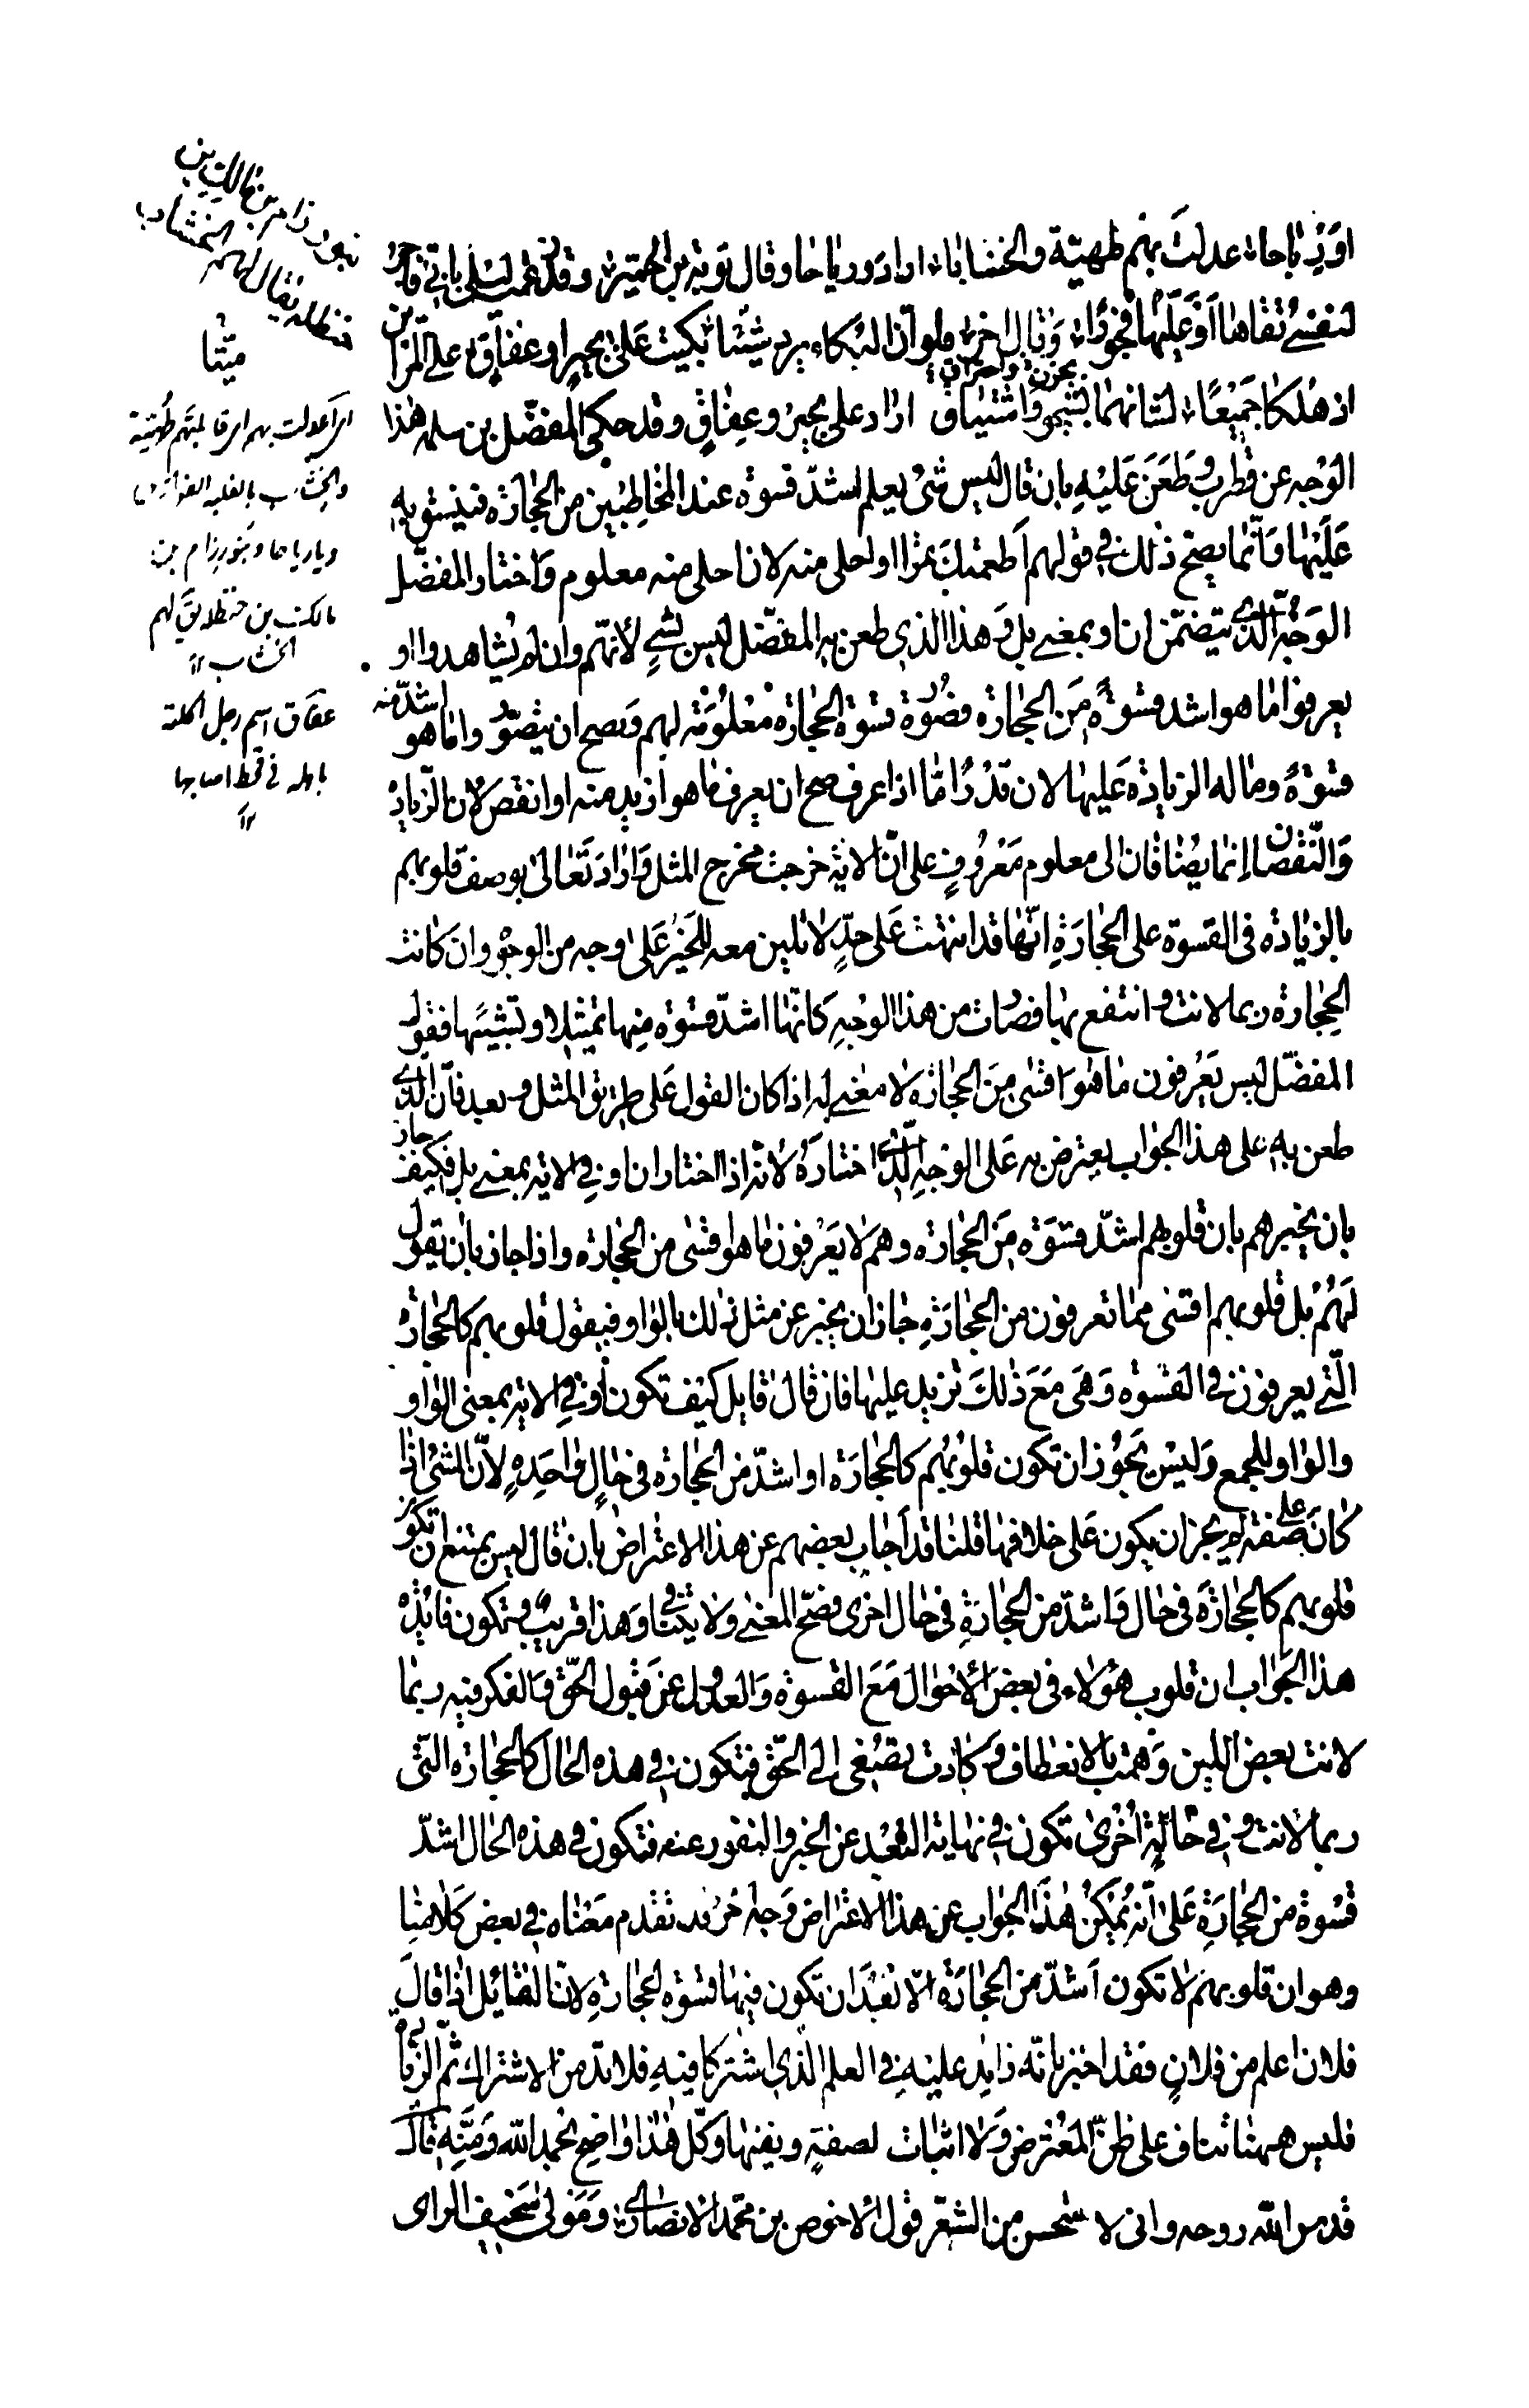 او رياحا عدلت بهم طهية والخشابا اراد ورياحا وقال توبة بن الحمير وقد زعمت ليلى باني فاجر
لنفسي تقاها او عليها فجورها وقال اخر فلو ان البكاء يرد شيئا بكيت على بجير او عفاق على المرأين
اذ هلكا جميعا لشانهما بشجو واشتياق اراد على بجير وعفاق وقد حكى المفضل بن سلمه هذا
بحزن واحتراق
الوجه عن قطرب وطعن عليه بان قال ليس شئ يعلم اشد قسوة عند المخاطبين من الحجارة فينسق به
عليها وانما يصح ذلك في قولهم اطعمتك تمرا او احلى منه لان احلى منه معلوم واختار المفضل
الوجه الذي يتضمن ان او بمعنى بل وهذا الذي طعن به المفضل ليس بشئ لانهم وان لم يشاهدوا او
يعرفوا ما هو اشد قسوة من الحجارة فصورة قسوة الحجارة معلومة لهم ويصح ان يتصوروا ما هو اشد منه
قسوة وما له الزيادة عليها لان قدرا ما اذا عرف صح ان يعرف ما هو ازيد منه او انقص لان الزيادة
والنقصان انما يضافان الى معلوم معروف على ان الاية خرجت مخرج المثل واراد تعالى بوصف قلوبهم
بالزيادة في القسوة على الحجارة انها قد انتهت على حد لا تلين معه للخير على وجه من الوجوه وان كانت
الحجارة ربما لانت وانتفع بها فصارت من هذا الوجه كانها اشد قسوة منها تمثيلا وتشبيها فقول
المفضل ليس يعرفون ما هو اقسى من الحجارة لا معنى له اذا كان القول على طريق المثل وبعد فان الذي
طعن به على هذا الجواب يعترض به على الوجه الذي اختاره لانه اذا اختار ان او في الاية بمعنى بل فكيف جاز
بان يخبرهم بان قلوبهم اشد قسوة من الحجارة وهم لا يعرفون ما هو اقسى من الحجارة واذا جاز بان يقول
لهم بل قلوبهم اقسى مما تعرفون من الحجارة جاز ان يخبر عن مثل ذلك بالواو فيقول قلوبهم كالحجارة
التي يعرفون في القسوة وهي مع ذلك تزيد عليها فان قال قايل كيف تكون او في الاية بمعنى الواو
والواو للجمع وليس يجوز ان تكون قلوبهم كالحجارة او اشد من الحجارة في حال واحدة لان الشئ اذا
كان على صفة لم يجز ان يكون على خلافها قلنا قد اجاب بعضهم عن هذا الاعتراض بان قال ليس يمتنع ان تكون
قلوبهم كالحجارة في حال واشد من الحجارة في حال اخرى فصح المعنى ولا يتنافى وهذا قريب وتكون فايدة
هذا الجواب ان قلوب هؤلاء في بعض الاحوال مع القسوة والعدول عن قبول الحق والفكر فيه ربما
لانت بعض اللين وهمت بالانعطاف وكادت تصغى الى الحق فتكون في هذه الحال كالحجارة التي
ربما لانت وفي حالة اخرى تكون في نهاية البعد عن الخير والنفور عنه فتكون في هذه الحال اشد
قسوة من الحجارة على انه يمكن هذا الجواب عن هذا الاعتراض وجه اخر قد تقدم معناه في بعض كلامنا
وهو ان قلوبهم لا تكون اشد من الحجارة الا بعد ان تكون فيها قسوة الحجارة لان القائل اذا قال
فلان اعلم من فلان فقد اخبر بانه زايد عليه في العلم الذي اشتركا فيه فلا بد من الاشتراك ثم الزيادة
فليس ههنا تناف على ظن المعترض ولا اثبات لصفة ونفيها وكل هذا واضح بحمد الله ومنه قال
قدس الله روحه واني لاستحسن من الشعر قول الاحوص بن محمد الانصاري ومولى سخيف الراي
بنو رزام بن مالك بن
حنظلة يقال لهم الخشاب
ميتا
اي اعدلت بهم
والخشاب
ويا رياحا وبنو رزام بن
مالك بن حنظلة يق لهم
الخشاب ١٢
عفاق اسم رجل اكلته
باهلة في قحط اصابها
١٢